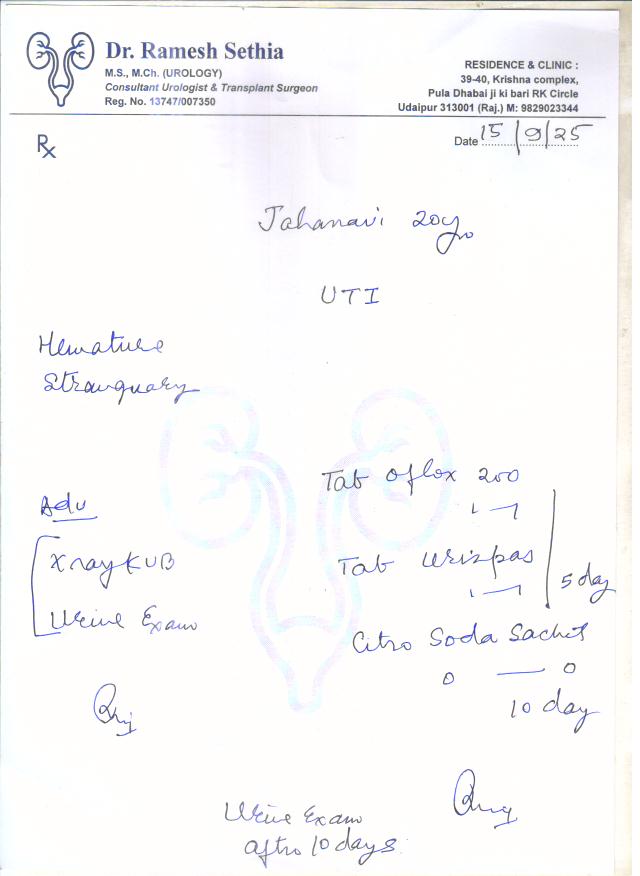 Dr. Ramesh Sethia
M.S., M.Ch. (UROLOGY)
Consultant Urologist & Transplant Surgeon
Reg. No. 13747/007350
RESIDENCE & CLINIC :
39-40, Krishna complex,
Pula Dhabai ji ki bari RK Circle
Udaipur 313001 (Raj.) M: 9829023344
Date 15/9/25
Rx
Jahanavi 20y
UTI
Hemature
Stranguary
Adv
Xray KUB
Urine Exam
Tab Oflox 200
1 — 1
Tab Urispas
1 — 1
5 day
Citro Soda Sachet
0 — 0
10 day
Urine Exam
aftro 10 days